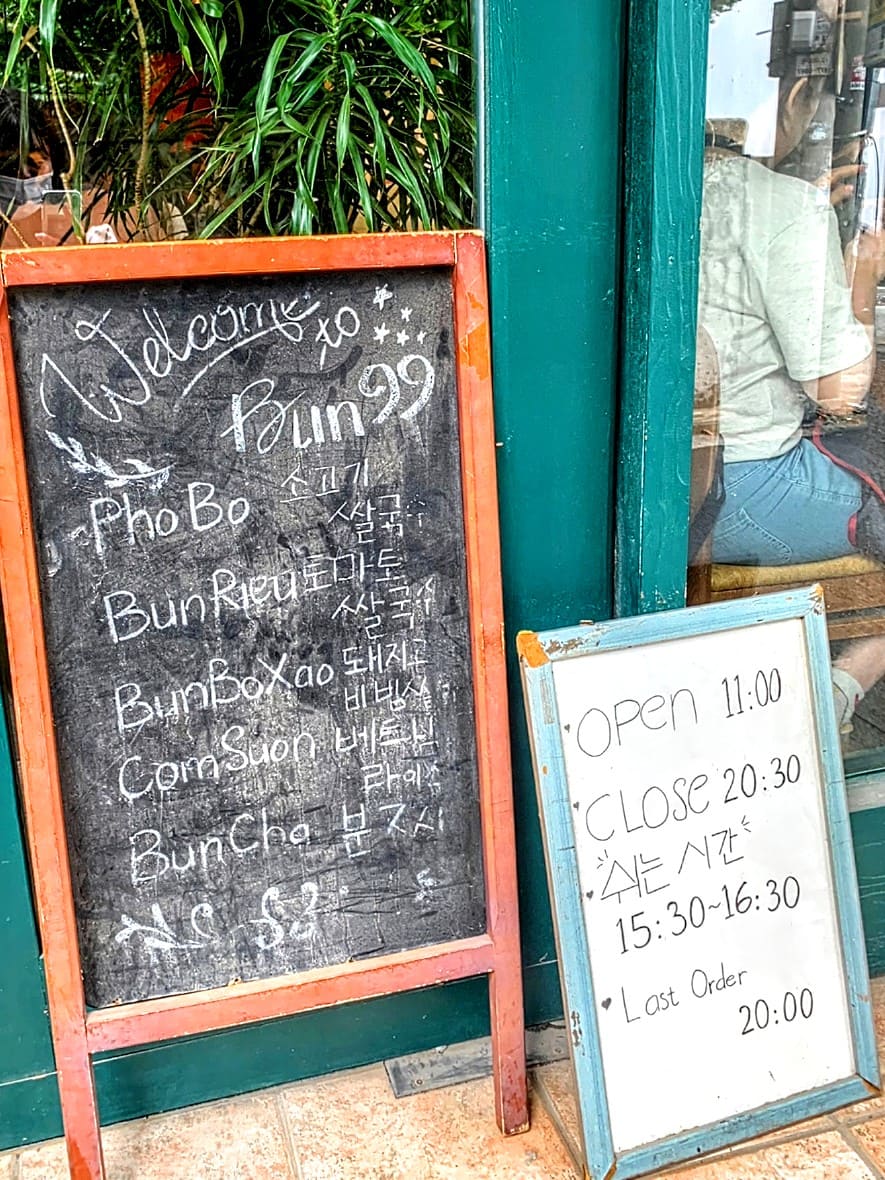 Welcome
xo
Bun99
Pho Bo 소고기
쌀국수
Bun Rieu 토마토
쌀국수
Bun Bo Xao 돼지고
비빔쌀
Com Suon 베트남
라이스
Bun Cha 분짜
OPen 11:00
CLOSe 20:30
쉬는 시간
15:30~16:30
Last Order
20:00